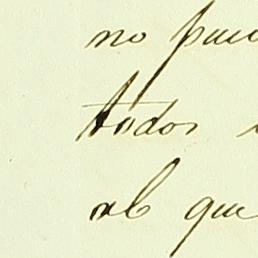 no pue
todos
al que